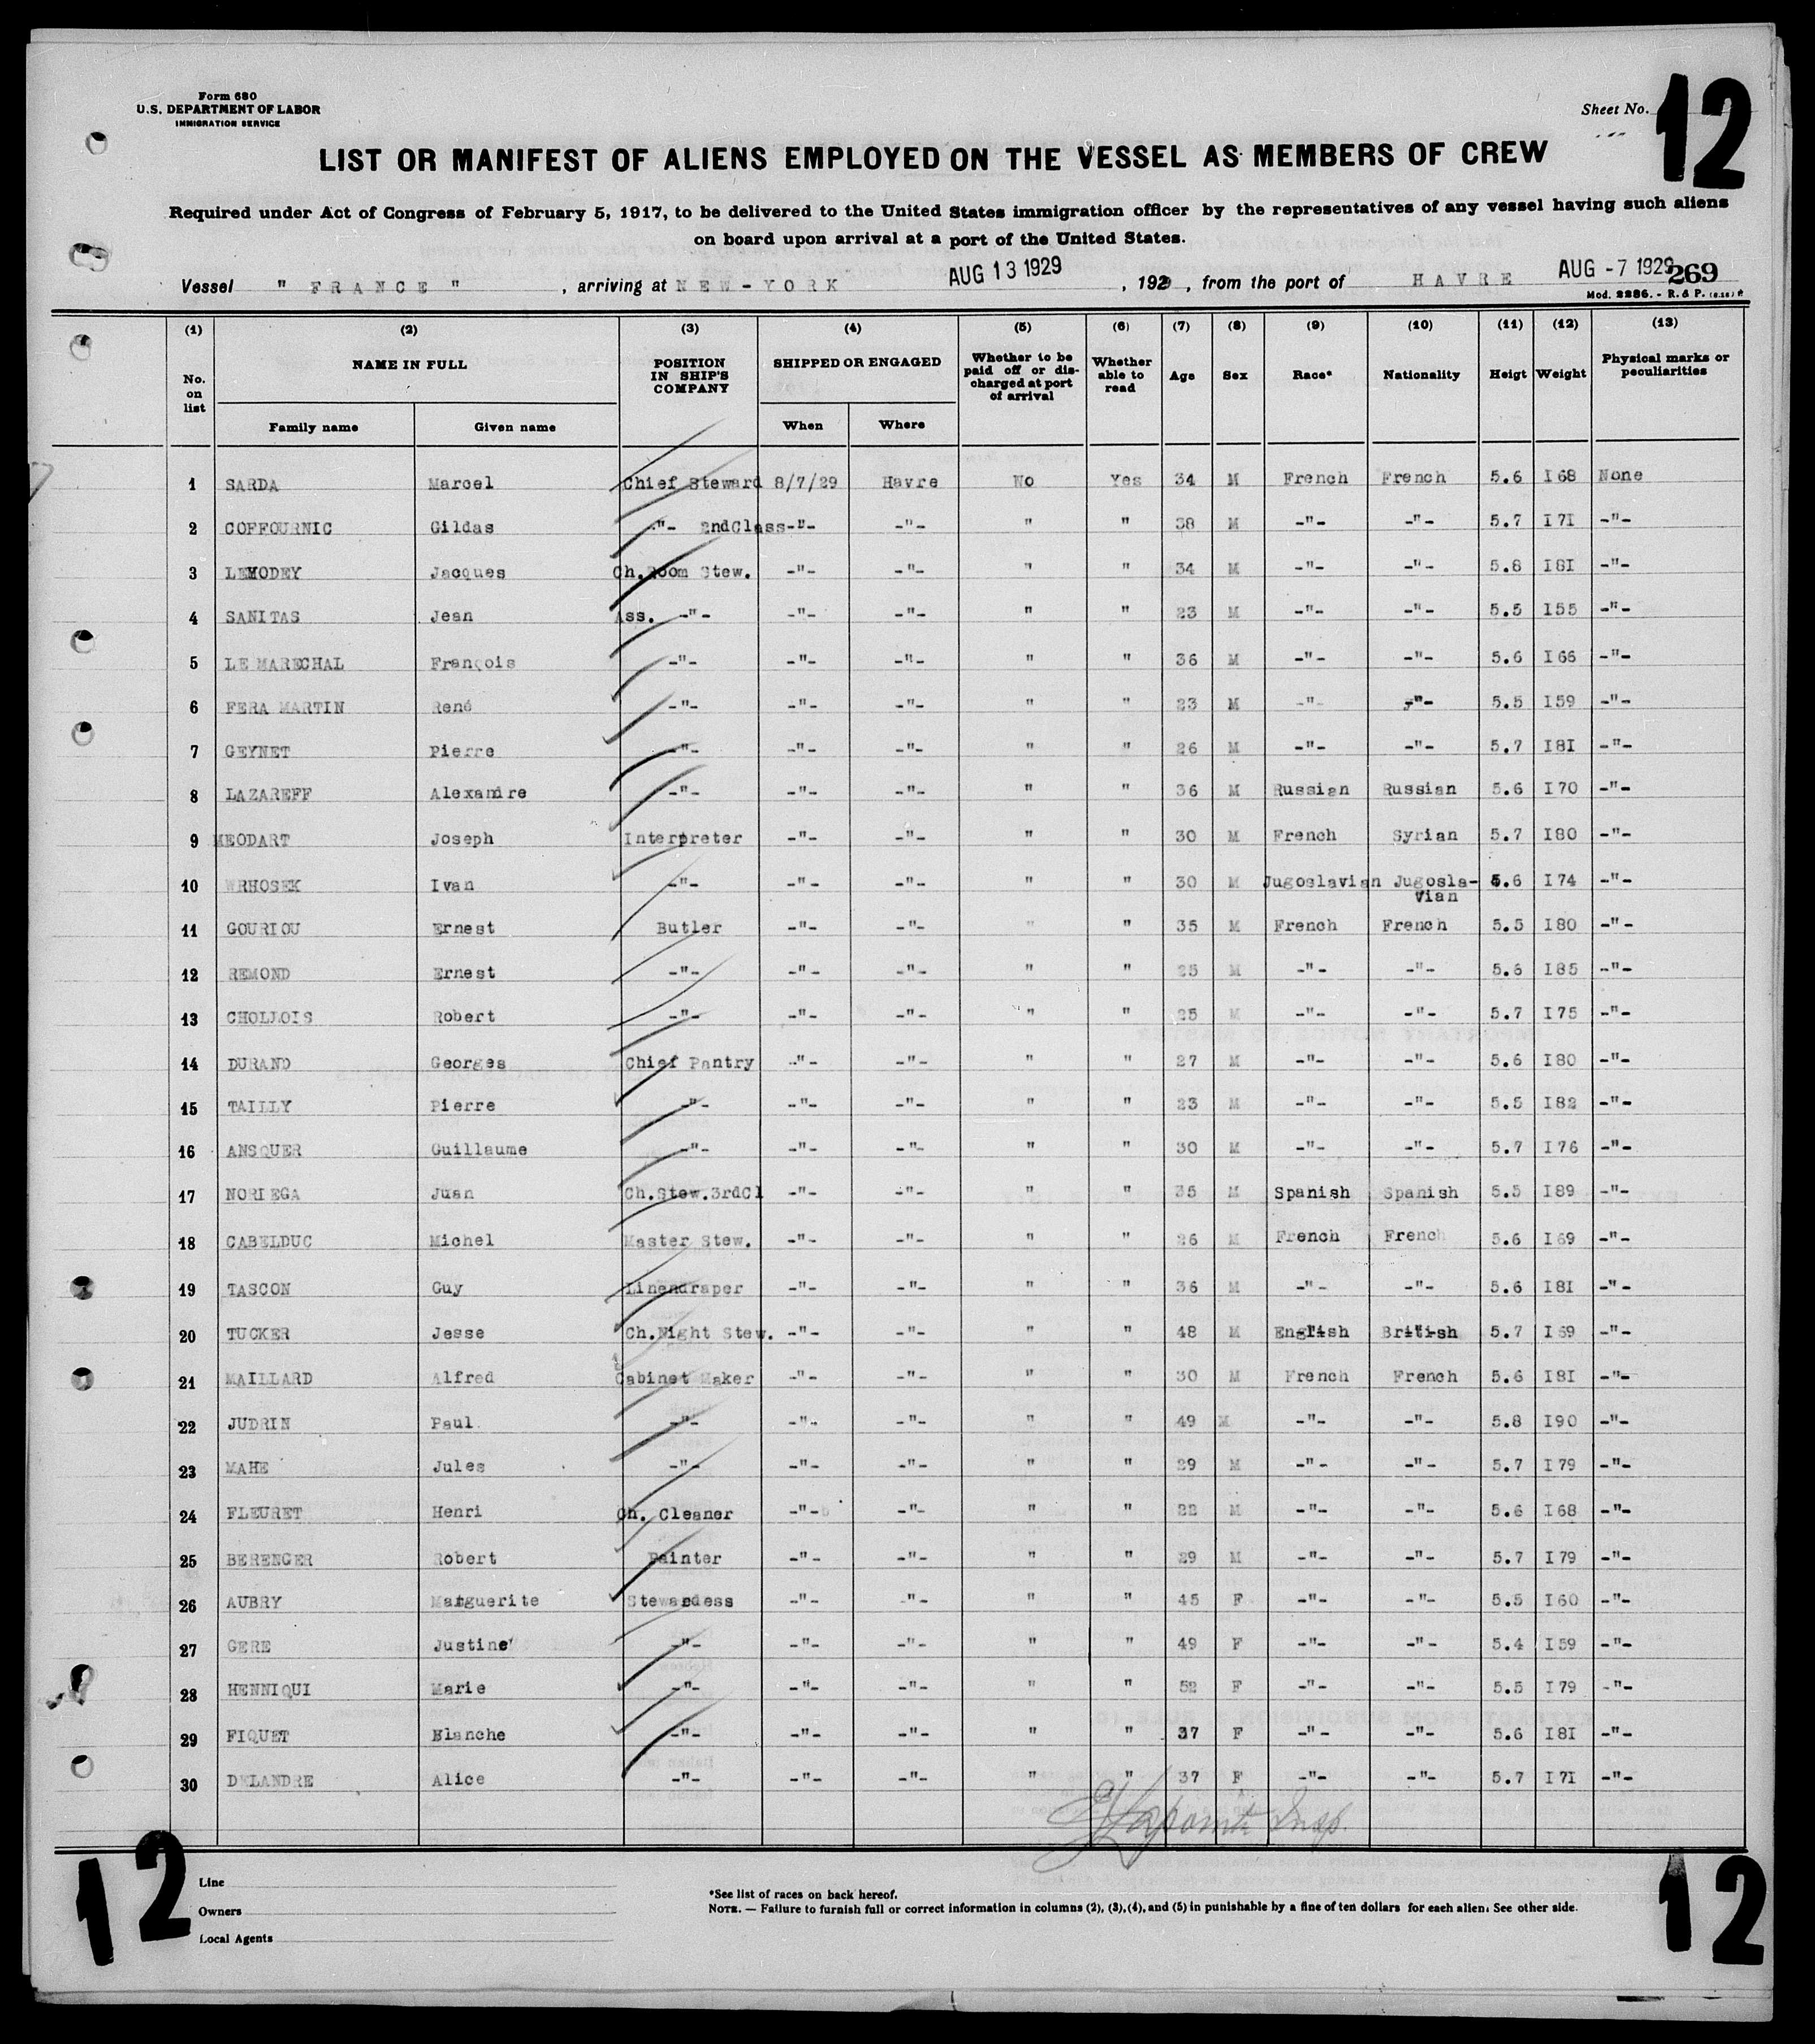 Form 680
U.S. DEPARTMENT OF LABOR
IMMIGRATION SERVICE
Sheet No. 12
LIST OR MANIFEST OF ALIENS EMPLOYED ON THE VESSEL AS MEMBERS OF CREW
Required under Act of Congress of February 5, 1917, to be delivered to the United States immigration officer by the representatives of any vessel having such aliens
on board upon arrival at a port of the United States.
Vessel " FRANCE ", arriving at NEW-YORK AUG 13 1929, 1929, from the port of HAVRE AUG -7 1929 269
Mod. 2286. - R. & P. (6.26)
(1) (2) (3) (4) (5) (6) (7) (8) (9) (10) (11) (12) (13)
No. on list NAME IN FULL POSITION IN SHIP'S COMPANY SHIPPED OR ENGAGED Whether to be paid off or discharged at port of arrival Whether able to read Age Sex Race* Nationality Heigt Weight Physical marks or peculiarities
Family name Given name When Where
1 SARDA Marcel Chief Steward 8/7/29 Havre No Yes 34 M French French 5.6 I68 None
2 COFFOURNIC Gildas -"- 2ndClass -"- -"- " " 38 M -"- -"- 5.7 I7I -"-
3 LEMODEY Jacques Ch.Room Stew. -"- -"- " " 34 M -"- -"- 5.8 I8I -"-
4 SANITAS Jean Ass. -"- -"- -"- " " 23 M -"- -"- 5.5 I55 -"-
5 LE MARECHAL François -"- -"- -"- " " 36 M -"- -"- 5.6 I66 -"-
6 FERA MARTIN René -"- -"- -"- " " 23 M -"- -"- 5.5 I59 -"-
7 GEYNET Pierre -"- -"- -"- " " 26 M -"- -"- 5.7 I8I -"-
8 LAZAREFF Alexandre -"- -"- -"- " " 36 M Russian Russian 5.6 I70 -"-
9 MEODART Joseph Interpreter -"- -"- " " 30 M French Syrian 5.7 I80 -"-
10 WRHOSEK Ivan -"- -"- -"- " " 30 M Jugoslavian Jugosla-vian 5.6 I74 -"-
11 GOURIOU Ernest Butler -"- -"- " " 35 M French French 5.5 I80 -"-
12 REMOND Ernest -"- -"- -"- " " 25 M -"- -"- 5.6 I85 -"-
13 CHOLLOIS Robert -"- -"- -"- " " 25 M -"- -"- 5.7 I75 -"-
14 DURAND Georges Chief Pantry -"- -"- " " 27 M -"- -"- 5.6 I80 -"-
15 TAILLY Pierre -"- -"- -"- " " 23 M -"- -"- 5.5 I82 -"-
16 ANSQUER Guillaume -"- -"- -"- " " 30 M -"- -"- 5.7 I76 -"-
17 NORIEGA Juan Ch.Stew.3rdCl -"- -"- " " 35 M Spanish Spanish 5.5 I89 -"-
18 CABELDUC Michel Master Stew. -"- -"- " " 26 M French French 5.6 I69 -"-
19 TASCON Guy Linendraper -"- -"- " " 36 M -"- -"- 5.6 I8I -"-
20 TUCKER Jesse Ch.Night Stew. -"- -"- " " 48 M English British 5.7 I69 -"-
21 MAILLARD Alfred Cabinet Maker -"- -"- " " 30 M French French 5.6 I8I -"-
22 JUDRIN Paul -"- -"- -"- " " 49 M -"- -"- 5.8 I90 -"-
23 MAHE Jules -"- -"- -"- " " 29 M -"- -"- 5.7 I79 -"-
24 FLEURET Henri Ch. Cleaner -"- -"- " " 22 M -"- -"- 5.6 I68 -"-
25 BERENGER Robert Painter -"- -"- " " 29 M -"- -"- 5.7 I79 -"-
26 AUBRY Marguerite Stewardess -"- -"- " " 45 F -"- -"- 5.5 I60 -"-
27 GERE Justine -"- -"- -"- " " 49 F -"- -"- 5.4 I59 -"-
28 HENNIQUI Marie -"- -"- -"- " " 52 F -"- -"- 5.5 I79 -"-
29 FIQUET Blanche -"- -"- -"- " " 37 F -"- -"- 5.6 I8I -"-
30 DELANDRE Alice -"- -"- -"- " " 37 F -"- -"- 5.7 I7I -"-
Insp.
12 12
Line
Owners
Local Agents
*See list of races on back hereof.
NOTE. — Failure to furnish full or correct information in columns (2), (3), (4), and (5) in punishable by a fine of ten dollars for each alien. See other side.